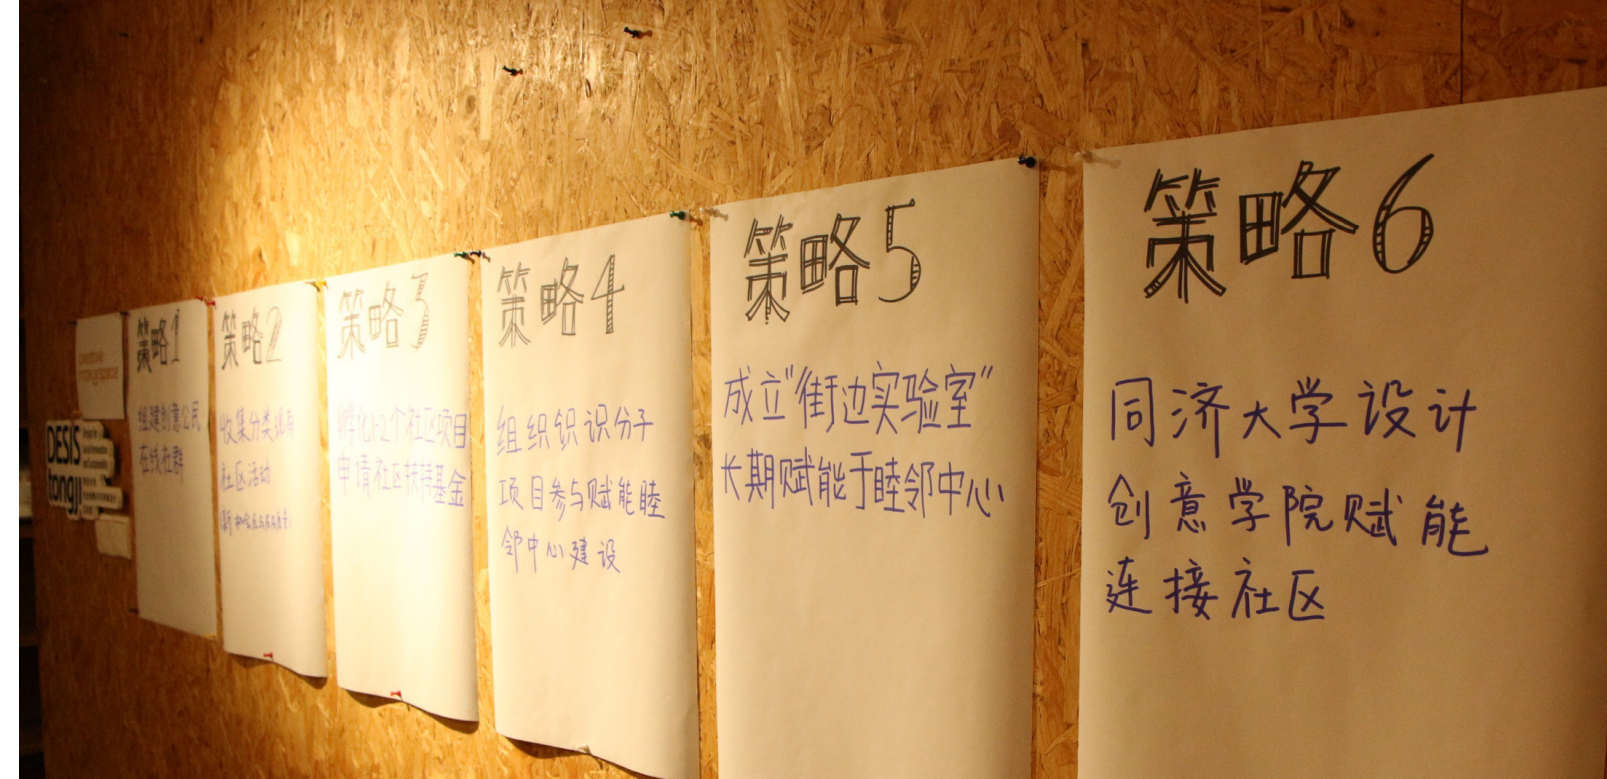 creative
makerspace
DESIS
tongji
策略1
组建创意公民
在线社群
策略2
收集分类现有
社区活动
策略3
孵化1-2个社区项目
申请社区扶持基金
策略4
组织织识分子
项目参与赋能睦
邻中心建设
策略5
成立"街边实验室"
长期赋能于睦邻中心
策略6
同济大学设计
创意学院赋能
连接社区